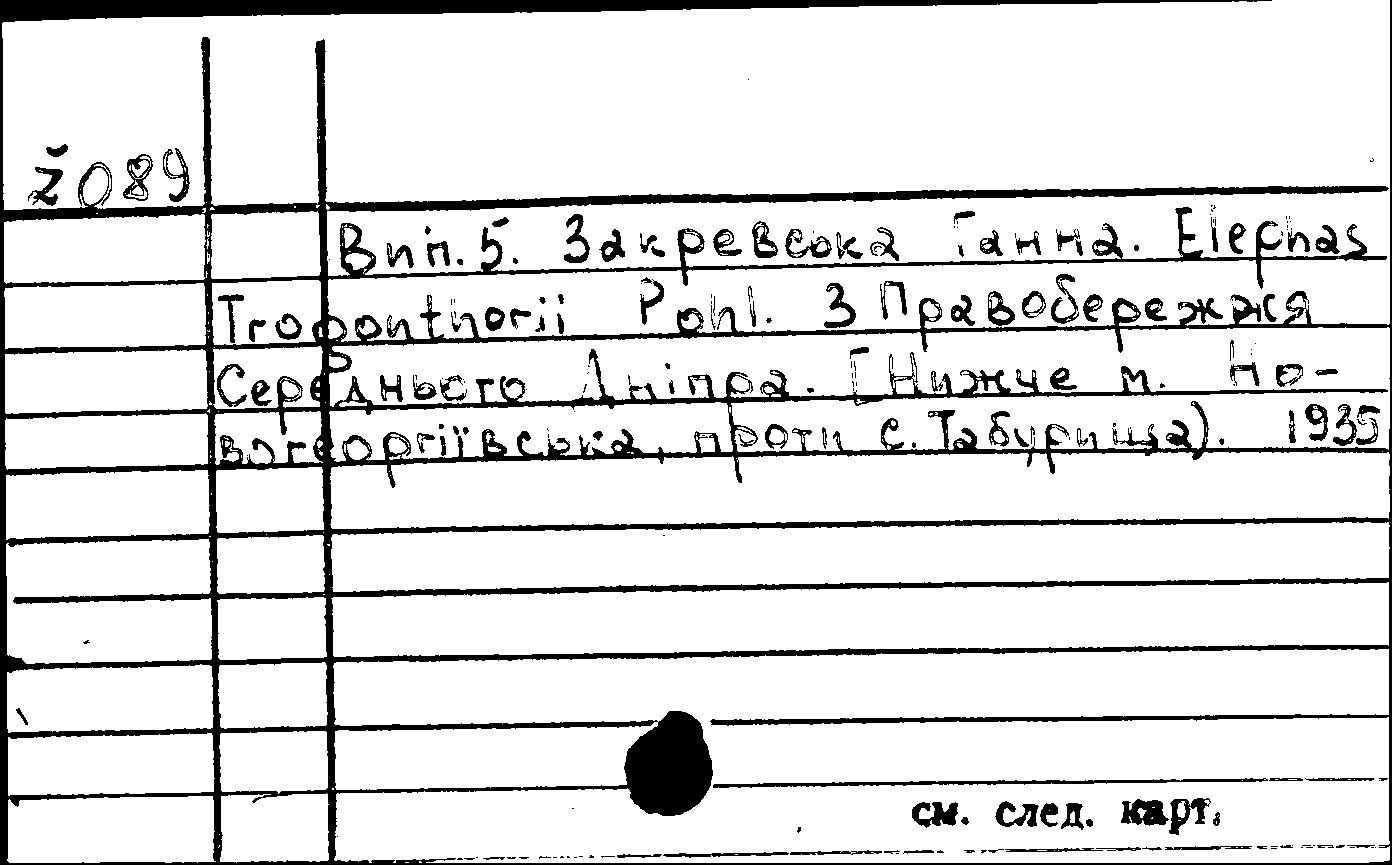 ž 089
Вип. 5. Закревська Ганна. Elephas
Trogonthorii Pohl. З Правобережжя
Середнього Дніпра. [Нижче м. Но-
вогеоргіївська, проти с. Табурища). 1935
см. след. карт.